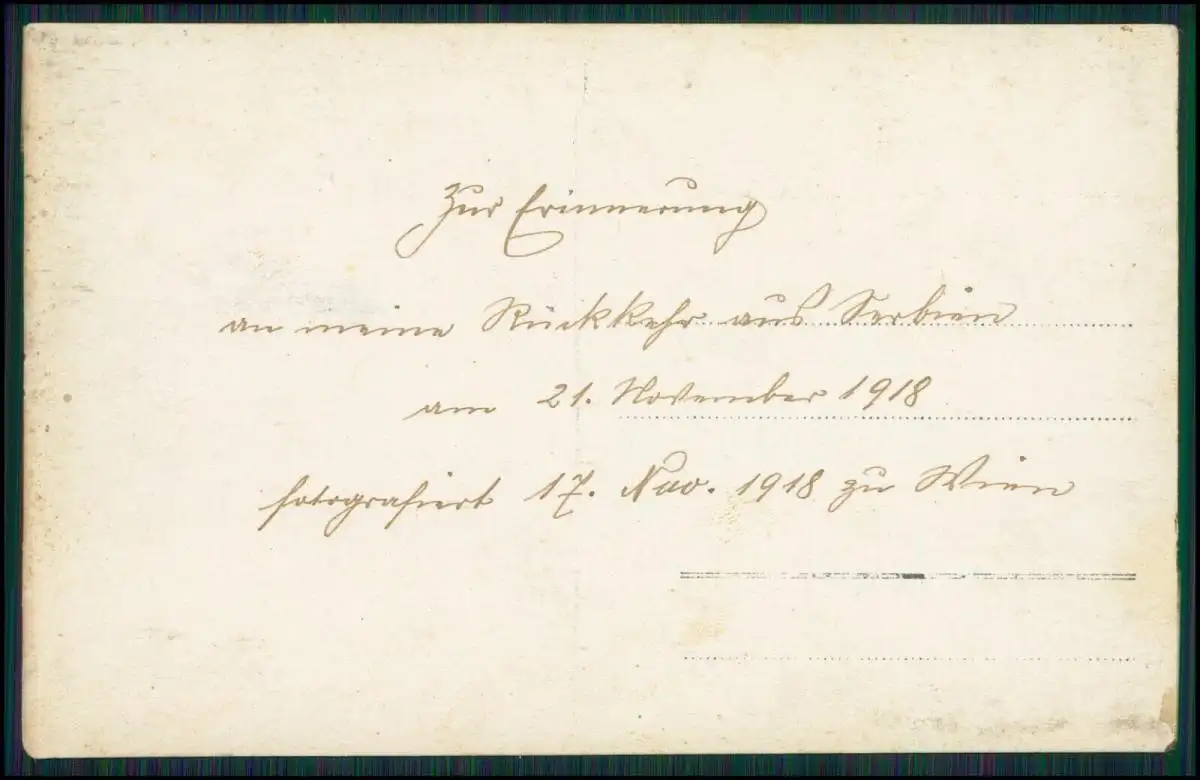 Zur Erinnerung
an meine Rückkehr aus Serbien
am 21. November 1918
fotografiert 17. Nov. 1918 zu Wien